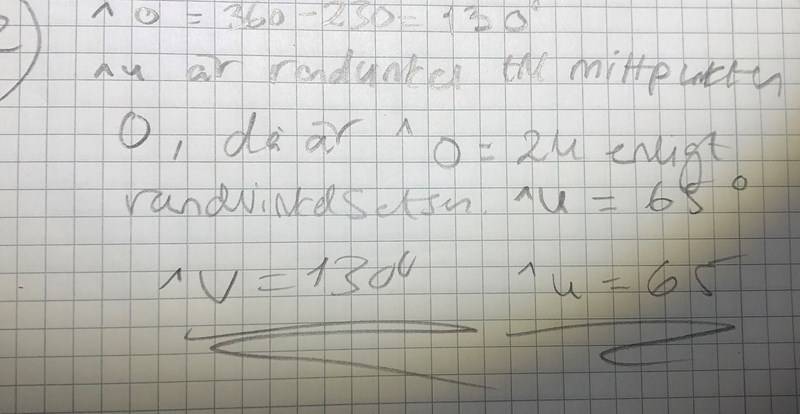 2) ^ O = 360 - 230 = 130°
^u är randvinkel till mittpunkten
O, då är ^ O = 2u enligt
randvinkelsatsen. ^u = 65°
^v = 130° ^u = 65